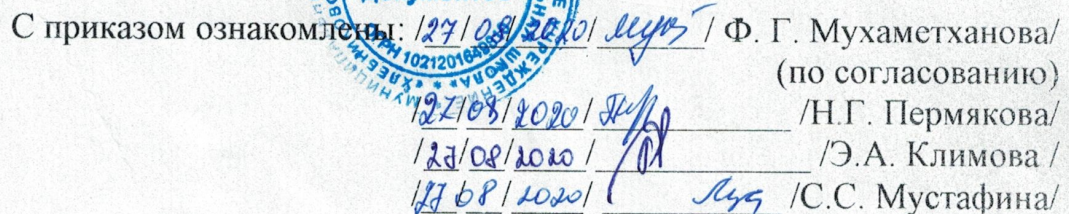 С приказом ознакомлены: /27/08/2020/ / Ф. Г. Мухаметханова/
(по согласованию)
/27/08/2020/ /Н.Г. Пермякова/
/27/08/2020/ /Э.А. Климова /
/27 08/2020/ /С.С. Мустафина/